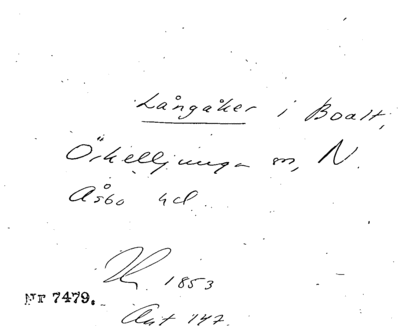 Långåker i Boalt,
Örkelljunga sn, N.
Åsbo hd.
1853
Nr 7479.
Ant 147.